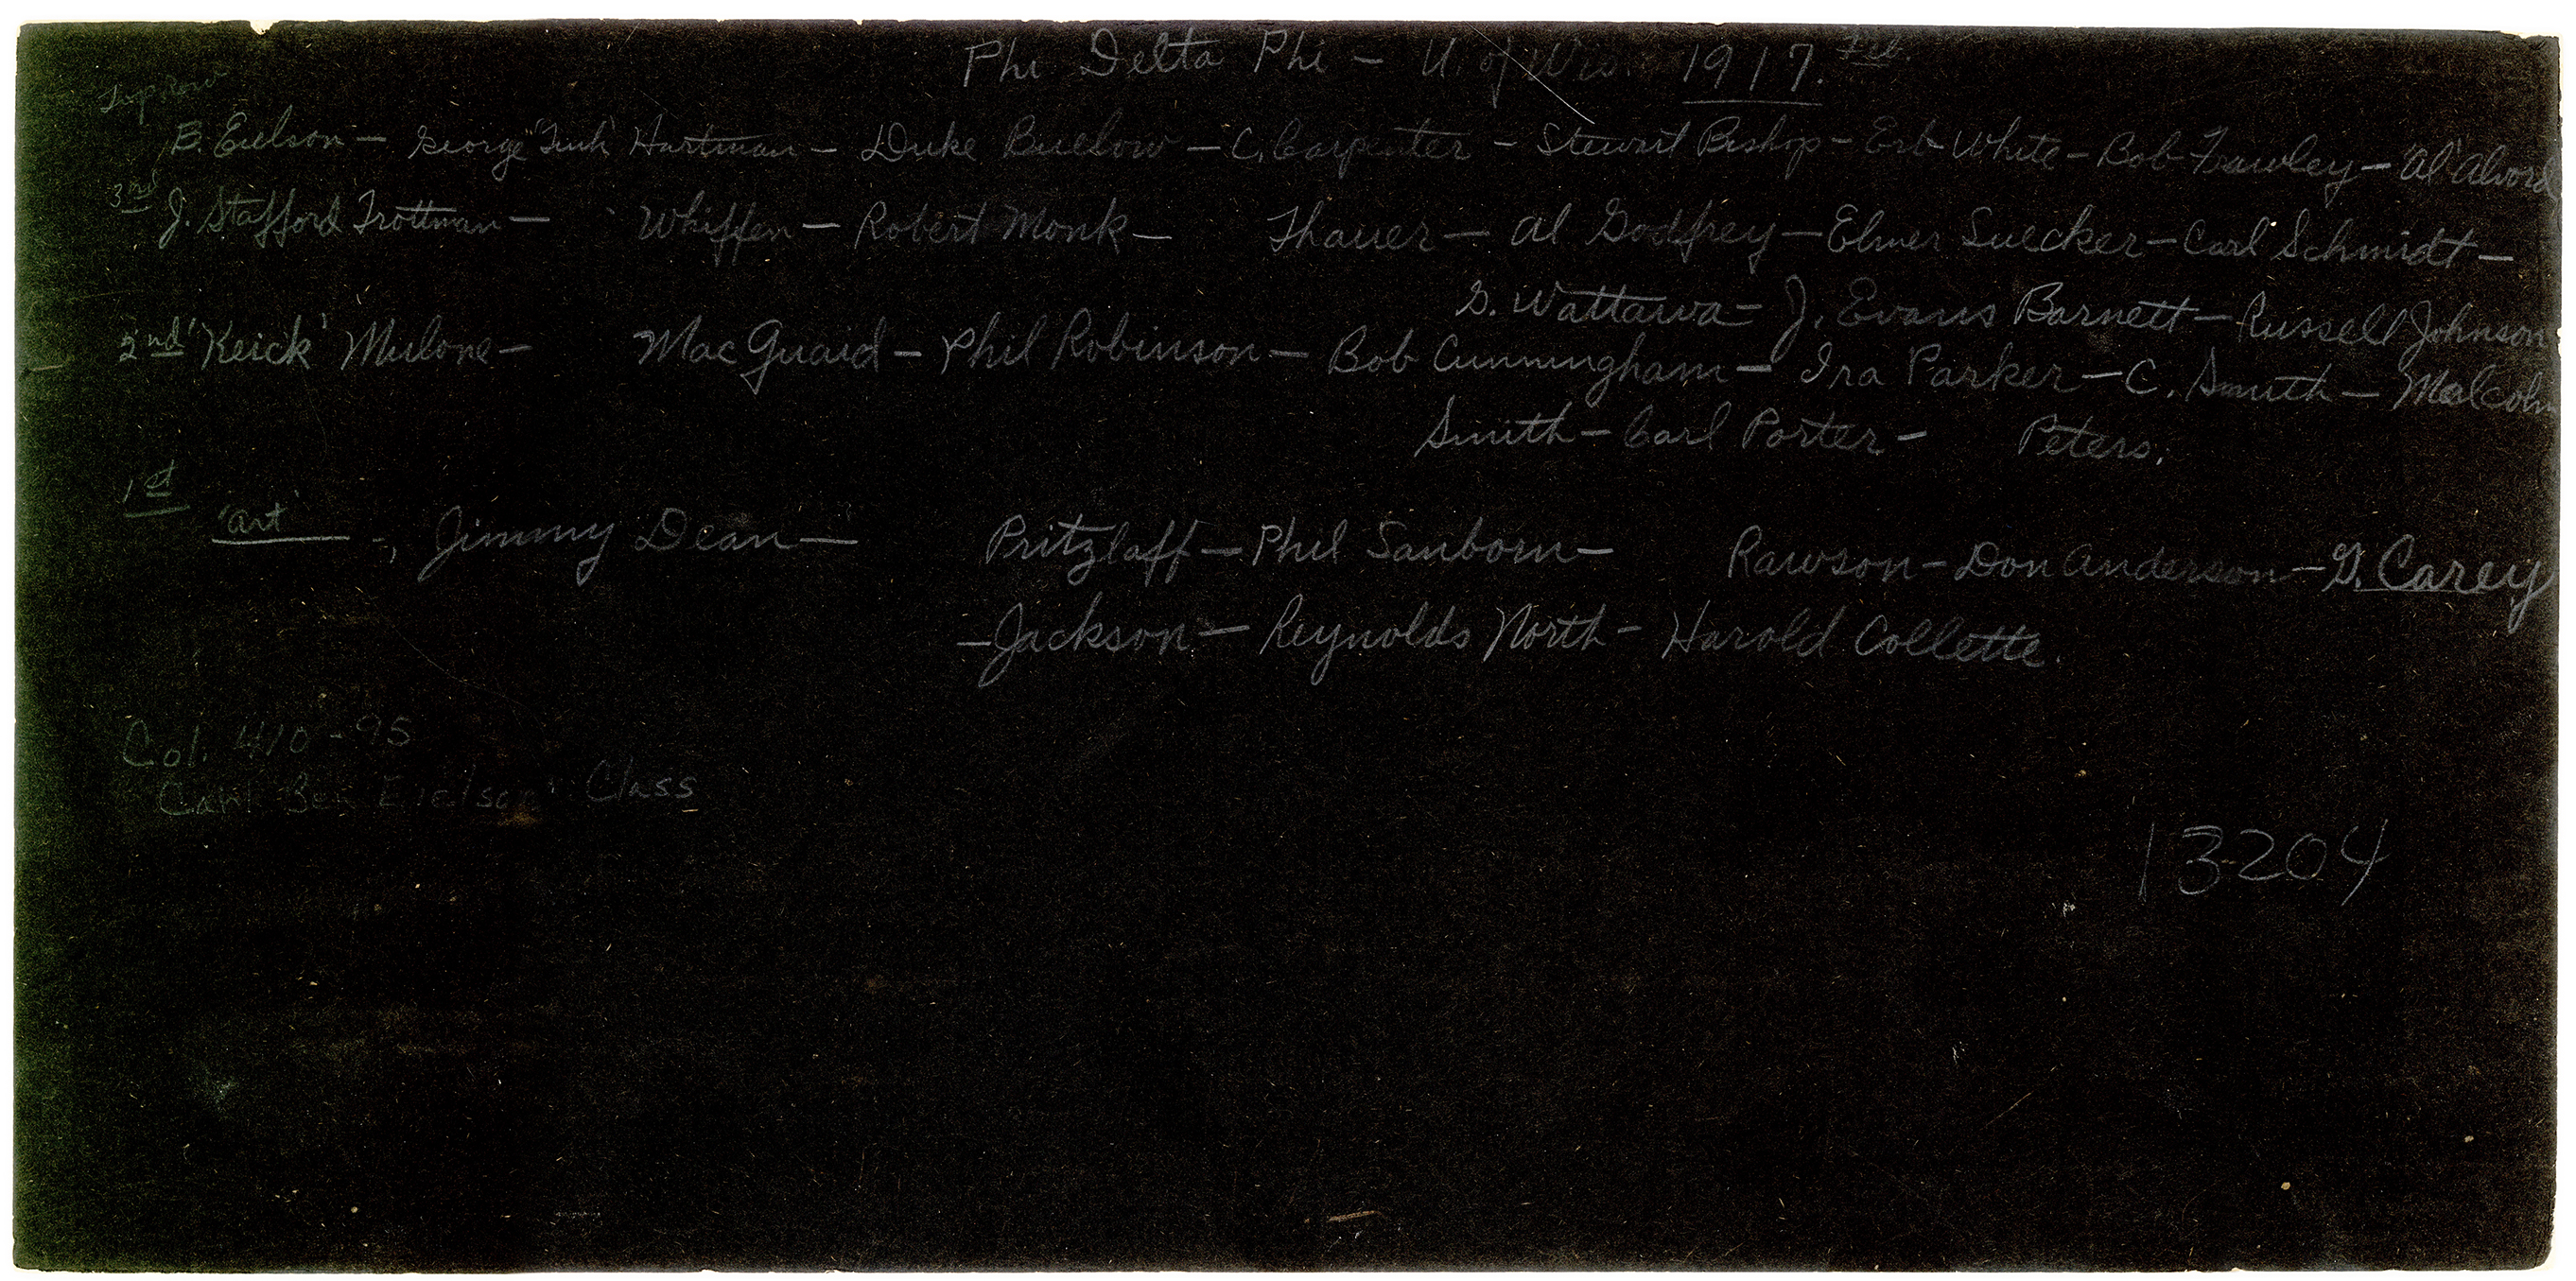 Phi Delta Phi – U. of Wis. 1917. Feb.
Top row
B. Eielson – George "Tink" Hartman – Duke Buelow – C. Carpenter – Stewart Bishop – Erb White – Bob Frawley – "Al" Alvord
3rd J. Stafford Trottman – Whiffen – Robert Monk – Thauer – Al Godfrey – Elmer Suecker – Carl Schmidt –
G. Wattawa – J. Evans Barnett – Russell Johnson
2nd 'Keick' Mulone – MacQuaid – Phil Robinson – Bob Cunningham – Ira Parker – C. Smith – Malcolm
Smith – Carl Porter – Peters.
1st
'Art' –, Jimmy Dean – Pritzlaff – Phil Sanborn – Rawson – Don Anderson – G. Carey
– Jackson – Reynolds North – Harold Collette.
Col. 410-95
Ben Eielson Class
13204